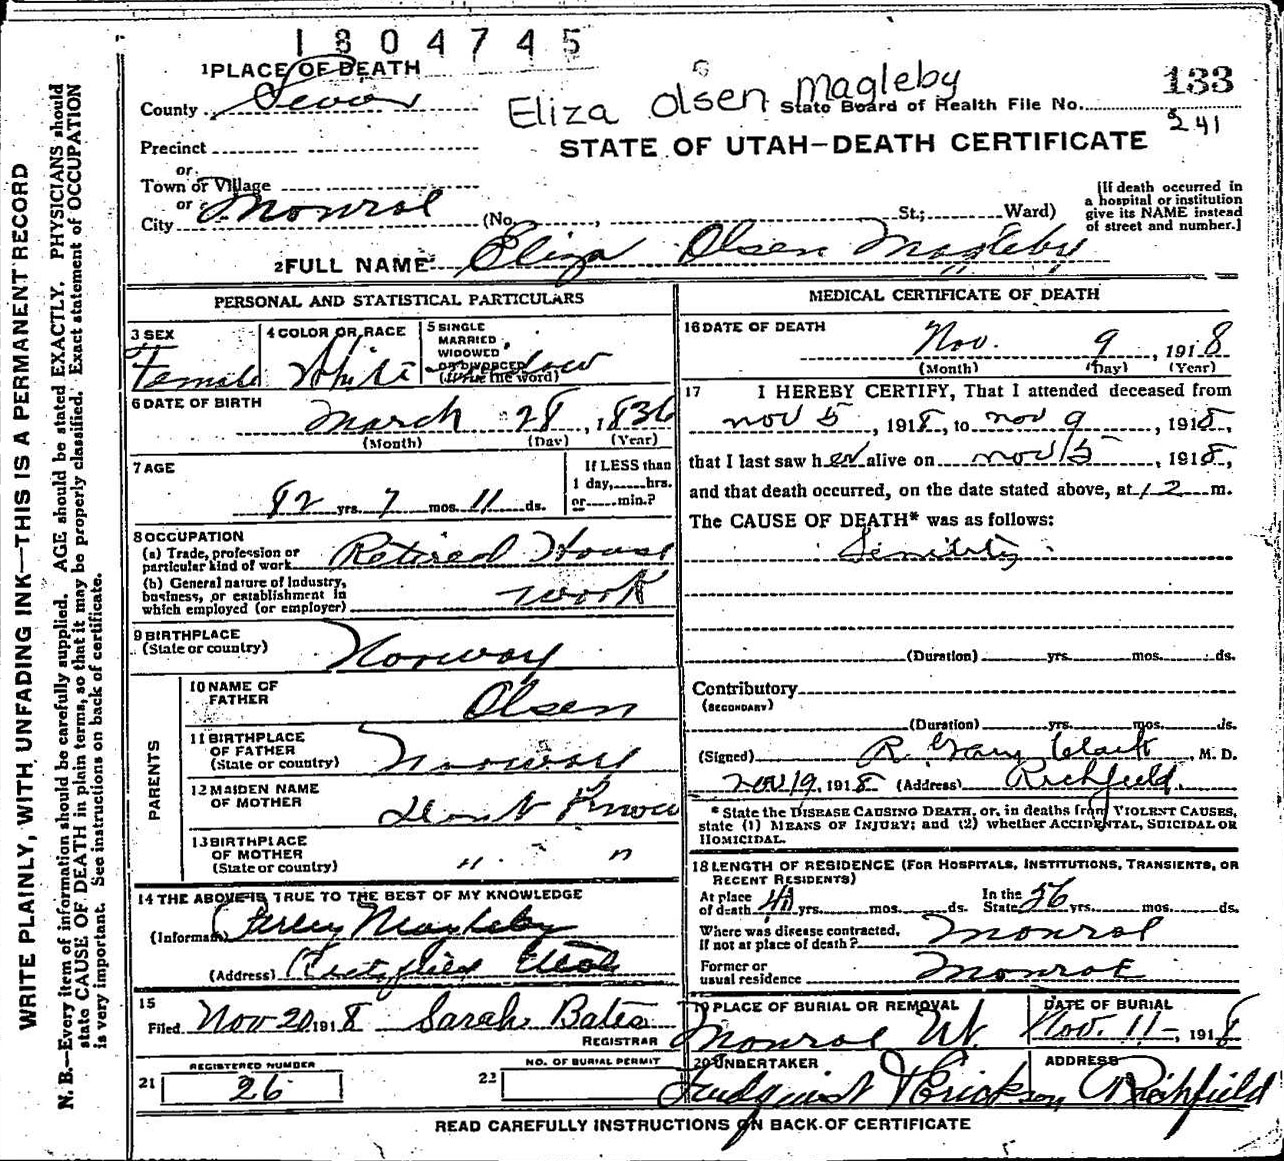 1804745
1 PLACE OF DEATH
County Sevier
Eliza Olsen Magleby
State Board of Health File No. 133
241
STATE OF UTAH—DEATH CERTIFICATE
Precinct
or
Town or Village
or
City Monroe (No. , St.; Ward)
[If death occurred in
a hospital or institution
give its NAME instead
of street and number.]
2 FULL NAME Eliza Olsen Magleby
PERSONAL AND STATISTICAL PARTICULARS
3 SEX
Female
4 COLOR OR RACE
White
5 SINGLE
MARRIED
WIDOWED
OR DIVORCED
(Write the word)
Widow
6 DATE OF BIRTH
March 28, 1836
(Month) (Day) (Year)
7 AGE
82 yrs. 7 mos. 11 ds.
If LESS than
1 day, hrs.
or min.?
8 OCCUPATION
(a) Trade, profession or
particular kind of work Retired House
(b) General nature of industry,
business, or establishment in
which employed (or employer) work
9 BIRTHPLACE
(State or country) Norway
PARENTS
10 NAME OF
FATHER Olsen
11 BIRTHPLACE
OF FATHER
(State or country) Norway
12 MAIDEN NAME
OF MOTHER Don't Know
13 BIRTHPLACE
OF MOTHER
(State or country) " "
14 THE ABOVE IS TRUE TO THE BEST OF MY KNOWLEDGE
(Informant) Magleby
(Address) Richfield Utah
15
Filed Nov 20 1918 Sarah Bates
REGISTRAR
REGISTERED NUMBER
21 26
NO. OF BURIAL PERMIT
22
MEDICAL CERTIFICATE OF DEATH
16 DATE OF DEATH
Nov. 9, 1918
(Month) (Day) (Year)
17 I HEREBY CERTIFY, That I attended deceased from
Nov 5, 1918, to Nov 9, 1918,
that I last saw her alive on Nov 5, 1918,
and that death occurred, on the date stated above, at 12 m.
The CAUSE OF DEATH* was as follows:
Senility
(Duration) yrs. mos. ds.
Contributory
(SECONDARY)
(Duration) yrs. mos. ds.
(Signed) R. Gary Clark M. D.
Nov 19, 1918 (Address) Richfield
* State the DISEASE CAUSING DEATH, or, in deaths from VIOLENT CAUSES,
state (1) MEANS OF INJURY; and (2) whether ACCIDENTAL, SUICIDAL OR
HOMICIDAL.
18 LENGTH OF RESIDENCE (FOR HOSPITALS, INSTITUTIONS, TRANSIENTS, OR
RECENT RESIDENTS)
At place
of death yrs. mos. ds.
In the
State 56 yrs. mos. ds.
Where was disease contracted,
if not at place of death? Monroe
Former or
usual residence Monroe
19 PLACE OF BURIAL OR REMOVAL
Monroe Ut.
DATE OF BURIAL
Nov. 11, 1918
20 UNDERTAKER
& Erickson
ADDRESS
Richfield
READ CAREFULLY INSTRUCTIONS ON BACK OF CERTIFICATE
WRITE PLAINLY, WITH UNFADING INK—THIS IS A PERMANENT RECORD
N. B.—Every item of information should be carefully supplied. AGE should be stated EXACTLY. PHYSICIANS should
state CAUSE OF DEATH in plain terms, so that it may be properly classified. Exact statement of OCCUPATION
is very important. See instructions on back of certificate.